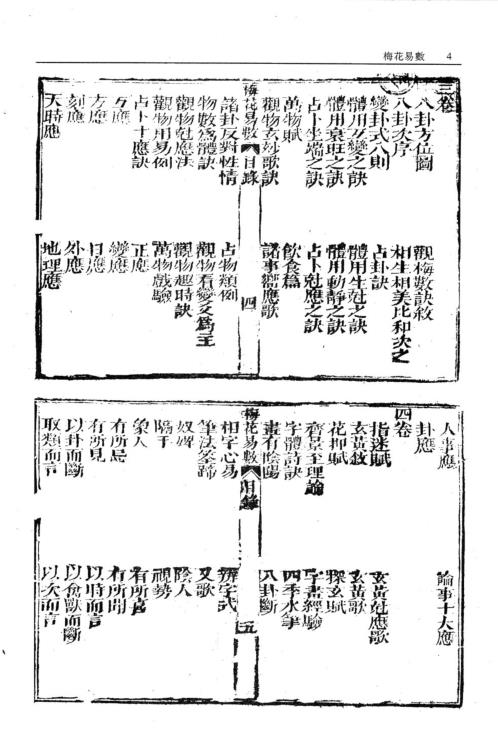 梅花易數 4
三卷
八卦方位圖 觀梅數訣敘
八卦次序 相生相美比和次之
變卦式八則 占卦訣
體用互變之訣 體用生尅之訣
體用衰旺之訣 體用動靜之訣
占卜坐端之訣 占卜尅應之訣
萬物賦 飲食篇
觀物玄妙歌訣 諸事響應歌
梅花易數 目錄 四
諸卦反對性情 占物類例
物數爲體訣 觀物看變爻爲主
觀物尅應法 觀物趣時訣
觀物用易例 萬物戲驗
占卜十應訣 正應
互應 變應
方應 日應
刻應 外應
天時應 地理應
人事應 論事十大應
卦應
四卷
指迷賦 玄黃尅應歌
玄黃敘 玄黃歌
花押賦 探玄賦
齊景至理論 字書經驗
字體詩訣 四季水筆
畫有陰陽 八卦斷
梅花易數 目錄 五
相字心易 辨字式
筆法筌蹄 又歌
奴婢 陰人
隔手 視勢
象人 有所喜
有所局 有所聞
有所見 以時而言
以卦而斷 以禽獸而斷
取類而言 以次而言